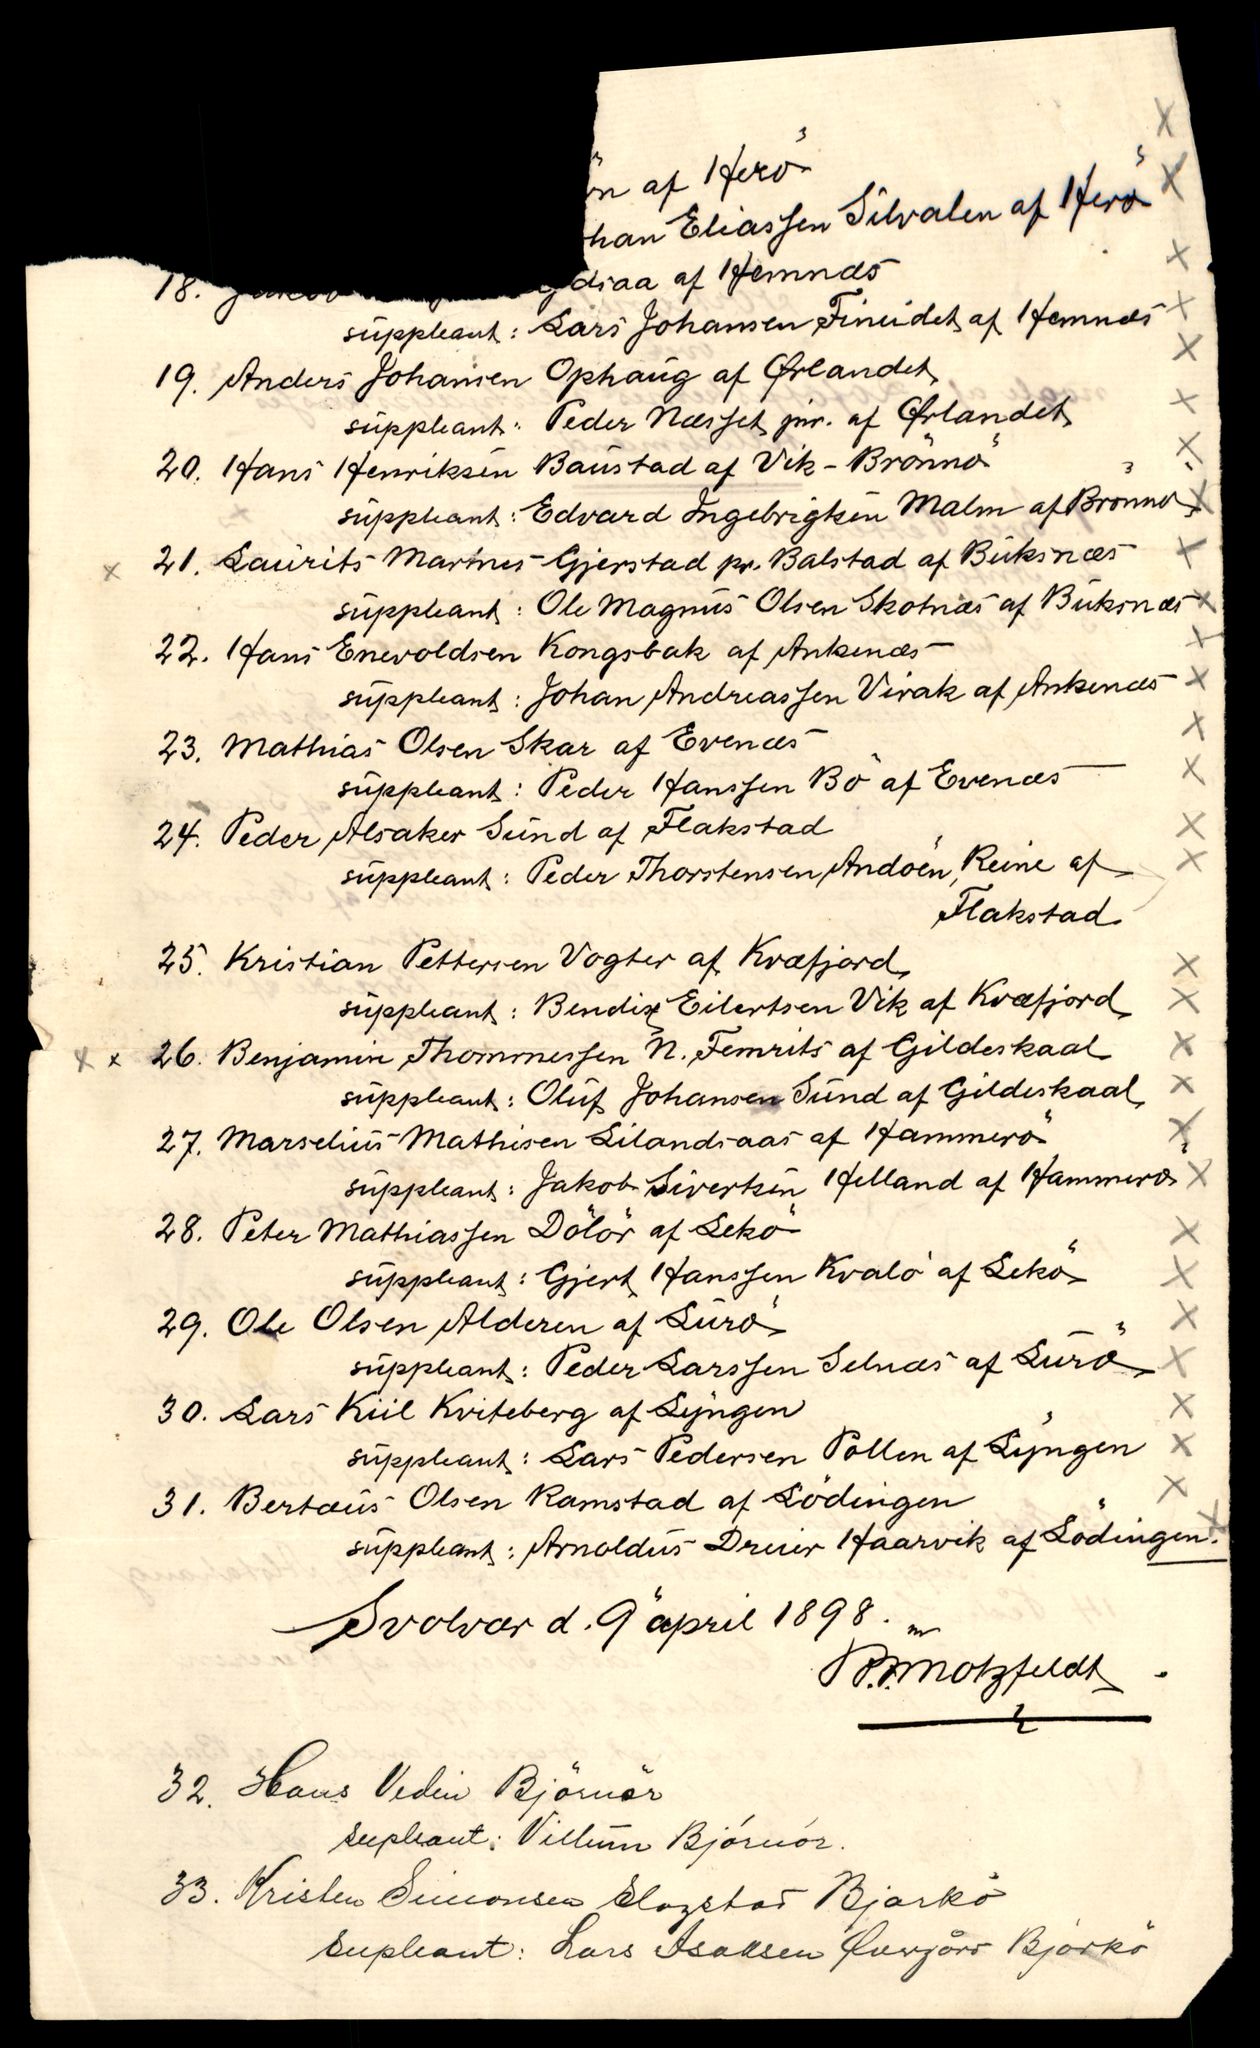 af Herö
han Eliassen Silvalen af Herö
18. af Hemnæs
suppleant: Lars Johansen Fineidet af Hemnæs
19. Anders Johansen Ophaug af Ørlandet
suppleant: Peder Næsset jnr. af Ørlandet
20. Hans Henriksen Baustad af Vik-Brönnö
suppleant: Edvard Ingebrigtsen Malm af Brönnö
x 21. Laurits Marinus Gjerstad pr. Balstad af Buksnæs
suppleant: Ole Magnus Olsen Skotnæs af Buksnæs
22. Hans Enevoldsen Kongsbak af Ankenæs
suppleant: Johan Andreassen Virak af Ankenæs
23. Mathias Olsen Skar af Evenæs
suppleant: Peder Hanssen Bö af Evenæs
24. Peder Alsaker Sund af Flakstad
suppleant: Peder Thorstensen Andöen, Reine af
Flakstad
25. Kristian Pettersen Vogter af Kvæfjord
suppleant: Bendix Eilertsen Vik af Kvæfjord
x x 26. Benjamin Thommessen N. Femris af Gildeskaal
suppleant: Oluf Johansen Sund af Gildeskaal
27. Marselius Mathisen Lilandsaas af Hammerö
suppleant: Jakob Sivertsen Helland af Hammerö
28. Peter Mathiassen Dölör af Lekö
suppleant: Gjert Hanssen Kvalö af Lekö
29. Ole Olsen Alderen af Lurö
suppleant: Peder Larssen Selnæs af Lurö
30. Lars Kiil Kviteberg af Lyngen
suppleant: Lars Pedersen Pollen af Lyngen
31. Bertæus Olsen Ramstad af Lödingen
suppleant: Arnoldus Dreier Haarvik af Lödingen.
Svolvær d. 9 april 1898.
P.F. Motzfeldt
32. Hans Vedin Björnör
supleant: Villum Björnör.
33. Kristen Simonsen Slogstad Bjarkö
supleant: Lars Isaksen Bjarkö